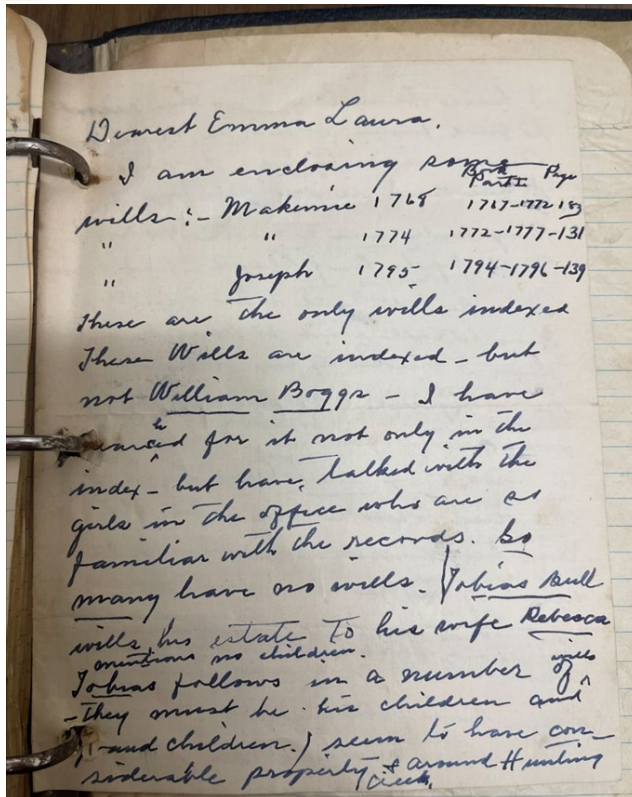 Dearest Emma Laura,
I am enclosing some
Book Page
Part I
wills :- Makemie 1768 1767-1772-183
" " 1774 1772-1777-131
" Joseph 1795 1794-1796-139
These are the only wills indexed
These Wills are indexed - but
not William Boggs - I have
searched for it not only in the
index - but have talked with the
girls in the office who are so
familiar with the records. So
many have no wills. (Tobias Bull
wills his estate to his wife Rebecca
mentions no children.
Tobias follows in a number of wills
- they must be his children and
grand children.) seem to have con-
siderable property & around Hunting
Creek.